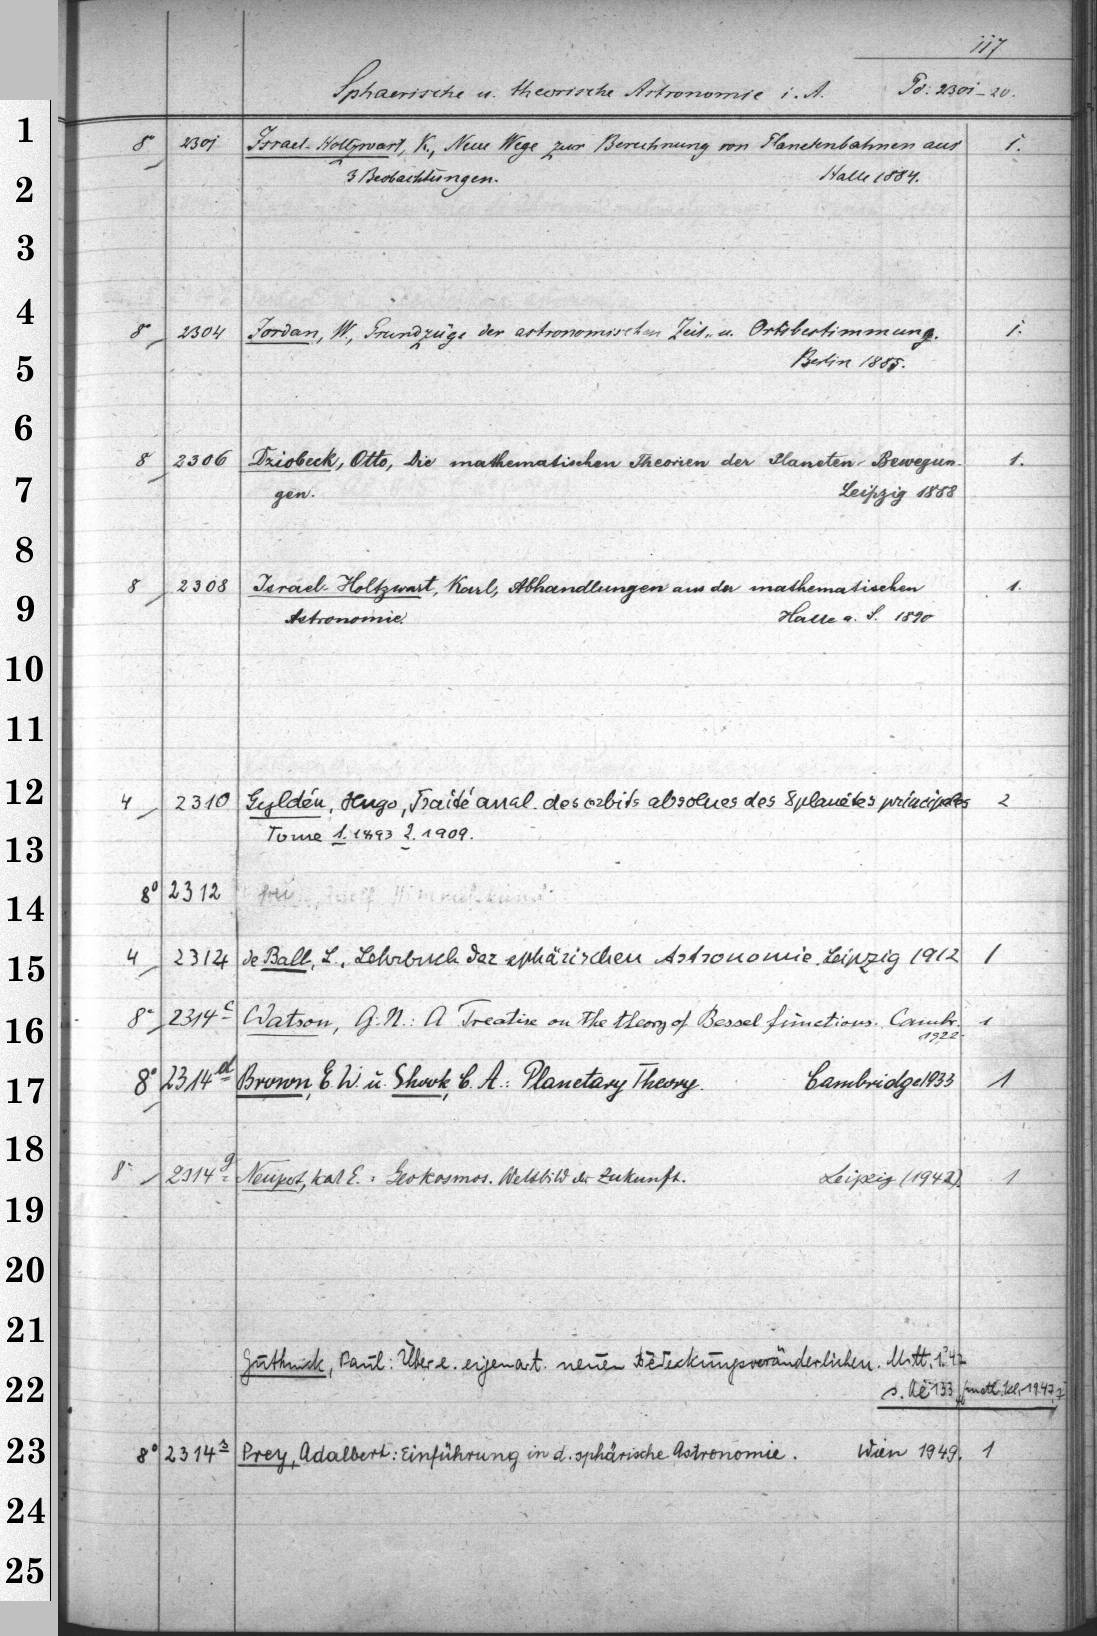 117
Sphaerische u. theorische Astronomie i. A. Pd: 2301-20.
1
8° 2301 Israel-Holtzwart, K., Neue Wege zur Berechnung von Planetenbahnen aus 1.
2
3 Beobachtungen. Halle 1884.
3
4
8° 2304 Jordan, W., Grundzüge der astronomischen Zeit- u. Ortsbestimmung. 1.
5
Berlin 1885.
6
8 2306 Dziobeck, Otto, Die mathematischen Theorien der Planeten-Bewegun- 1.
7
gen. Leipzig 1888
8
8 2308 Israel-Holtzwart, Karl, Abhandlungen aus der mathematischen 1.
9
Astronomie. Halle a. S. 1890
10
11
12
4 2310 Gyldén, Hugo, Traité anal. des orbits absolues des 8 planètes principales 2
13
Tome 1. 1893 2. 1909.
14
8° 2312 frei
15
4 2314 de Ball, L., Lehrbuch der sphärischen Astronomie. Leipzig 1912 1
16
8° 2314c Watson, G. N.: A Treatise on the theory of Bessel functions. Cambr. 1
1922.
17
8° 2314d Brown, E. W. u. Shook, C. A.: Planetary Theory. Cambridge 1933 1
18
8° 2314g Neupert, Karl E.: Geokosmos. Weltbild der Zukunft. Leipzig (1942). 1
19
20
21
Guthnick, Paul: Über e. eigenart. neuen Bedeckungsveränderlichen. Mitt.
22
s. Ae 133 math. Kl. 1947
23
8° 2314s Prey, Adalbert: Einführung in d. sphärische Astronomie. Wien 1949. 1
24
25